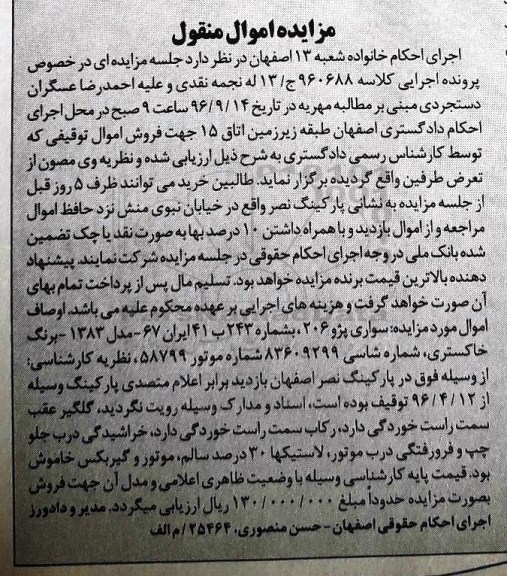 مزایده اموال منقول
اجرای احکام خانواده شعبه ۱۳ اصفهان در نظر دارد جلسه مزایده ای در خصوص
پرونده اجرایی کلاسه ۹۶۰۶۸۸ ج/۱۳ له نجمه نقدی و علیه احمدرضا عسگران
دستجردی مبنی بر مطالبه مهریه در تاریخ ۹۶/۹/۱۴ ساعت ۹ صبح در محل اجرای
احکام دادگستری اصفهان طبقه زیرزمین اتاق ۱۵ جهت فروش اموال توقیفی که
توسط کارشناس رسمی دادگستری به شرح ذیل ارزیابی شده و نظریه وی مصون از
تعرض طرفین واقع گردیده برگزار نماید. طالبین خرید می توانند ظرف ۵ روز قبل
از جلسه مزایده به نشانی پارکینگ نصر واقع در خیابان نبوی منش نزد حافظ اموال
مراجعه و از اموال بازدید و با همراه داشتن ۱۰ درصد بها به صورت نقد یا چک تضمین
شده بانک ملی در وجه اجرای احکام حقوقی در جلسه مزایده شرکت نمایند. پیشنهاد
دهنده بالاترین قیمت برنده مزایده خواهد بود. تسلیم مال پس از پرداخت تمام بهای
آن صورت خواهد گرفت و هزینه های اجرایی بر عهده محکوم علیه می باشد. اوصاف
اموال مورد مزایده: سواری پژو ۲۰۶، بشماره ۲۴۳ ب ۴۱ ایران ۶۷ -مدل ۱۳۸۳ -برنگ
خاکستری، شماره شاسی ۸۳۶۰۹۲۹۹ شماره موتور ۵۸۷۹۹، نظریه کارشناسی:
از وسیله فوق در پارکینگ نصر اصفهان بازدید برابر اعلام متصدی پارکینگ وسیله
از ۹۶/۴/۱۲ توقیف بوده است، اسناد و مدارک وسیله رویت نگردید، گلگیر عقب
سمت راست خوردگی دارد، رکاب سمت راست خوردگی دارد، خراشیدگی درب جلو
چپ و فرورفتگی درب موتور، لاستیکها ۳۰ درصد سالم، موتور و گیربکس خاموش
بود. قیمت پایه کارشناسی وسیله با وضعیت ظاهری اعلامی و مدل آن جهت فروش
بصورت مزایده حدوداً مبلغ ۱۳۰/۰۰۰/۰۰۰ ریال ارزیابی میگردد. مدیر و دادورز
اجرای احکام حقوقی اصفهان - حسن منصوری، ۲۵۴۶۴/م الف